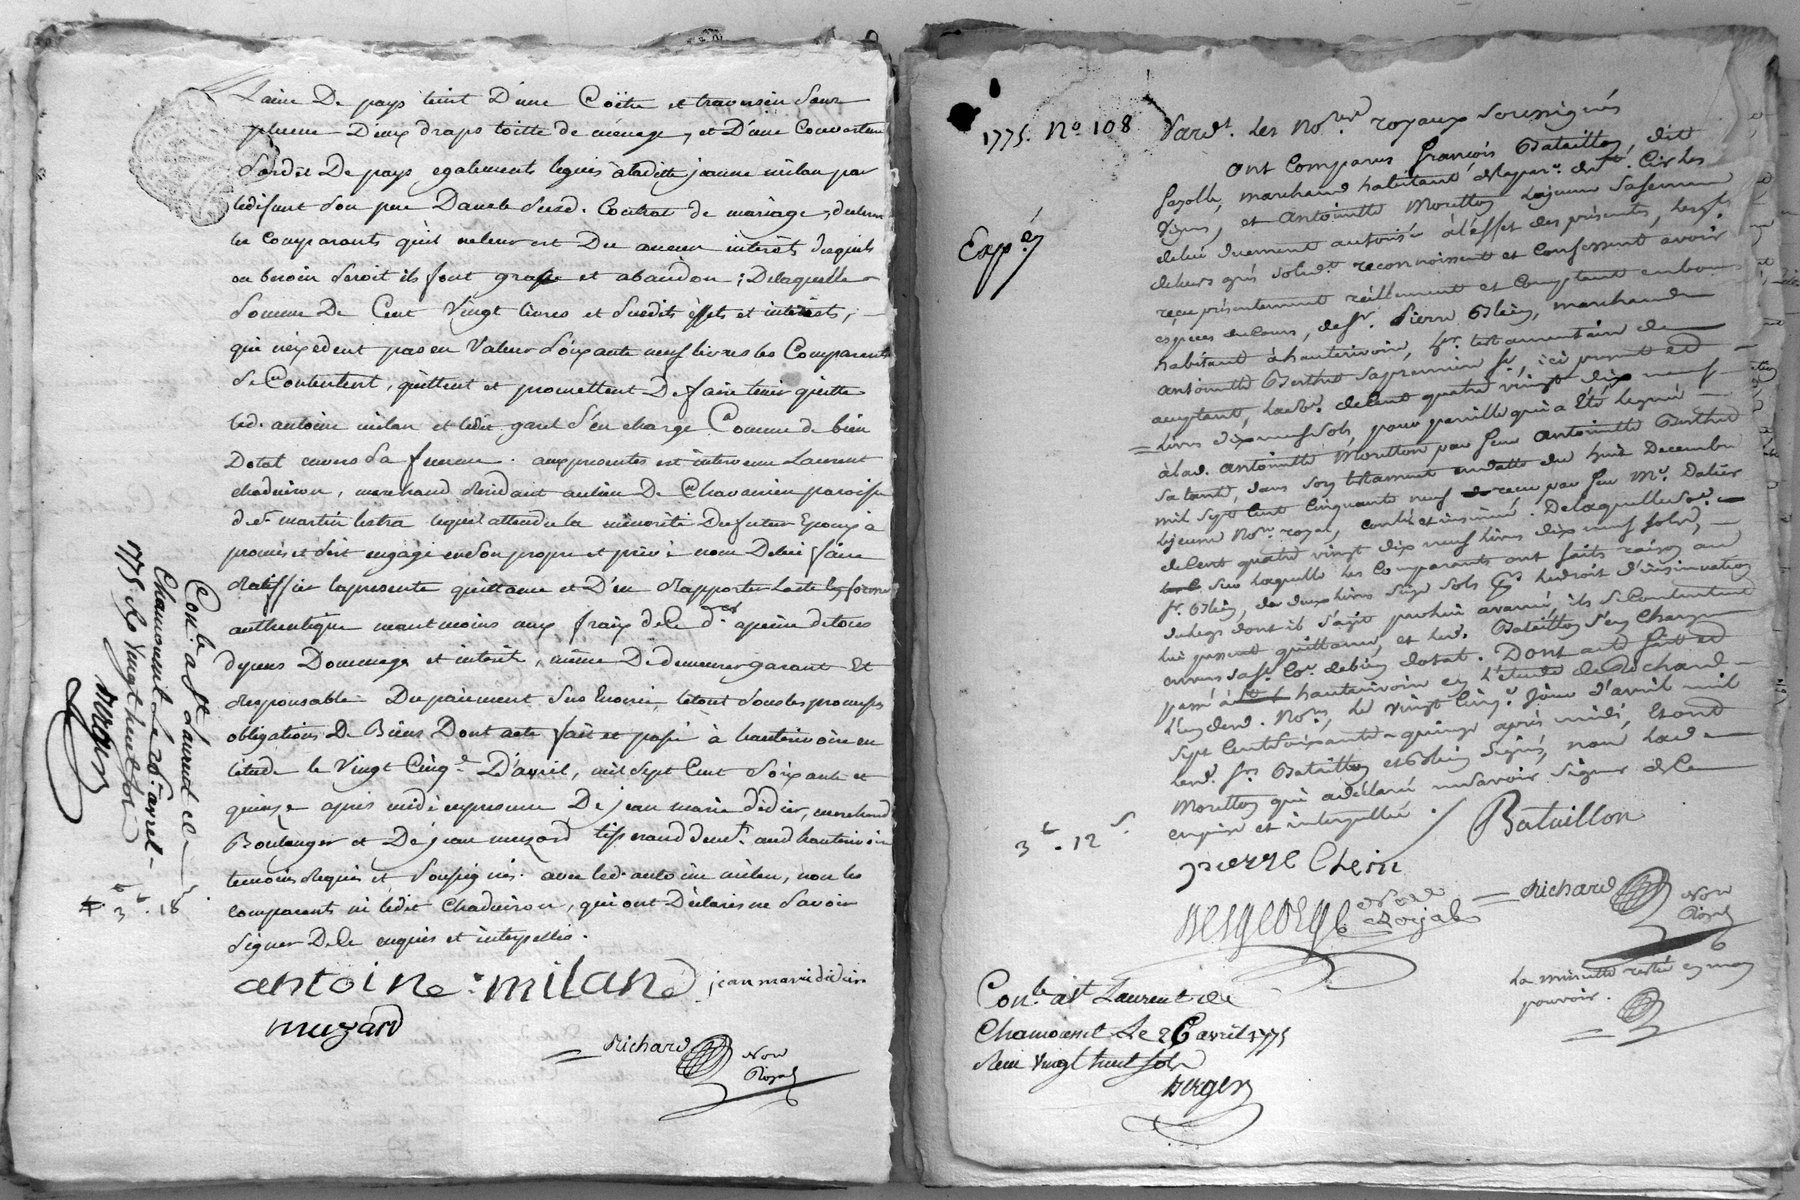 Laine De pays teint D'une Coëtre et traversin Sans
plume Deux draps toille de ménage, et D'une Couverture
Sardit De pays egalements legués aladitte jeanne milan par
ledisant son pere Dans le susd. Contrat de mariage, declarant
les comparants qu'il neleur est Du aucun intérêt desquels
au besoin seroit ils font grace et abandon ; Delaquelle
Somme De Cent Vingt livres et susdits effets et intérêts,
qui n'exedent pas en Valeur soixante neuf livres les Comparents
Se Contentent, quittent et promettent De faire tenir quitte
led. antoine milan et ledit garel s'en charge Comme de bien
Dotal envers Sa femme. aux presentes est intervenu Laurent
chaduiron, marchand Residant au lieu De Chavannen paroisse
de st martin lestra lequel attendu la minorité Du futur Epoux a
promis et s'est engagé en son propre et privé nom De lui faire
Ratiffier la presente quittance et D'en Rapporter l'acte en forme
authentique neantmoins aux fraix de Ce d.er apeine de tous
depens Dommages et interêts, même De demeurer garant Et
Responsable Du paiement Sus Enoncé, le tout sous les promesses
obligations De Biens Dont acte fait et passé à hauterivoire en
l'étude le Vingt Cinq.e D'avril, mil sept Cent Soixante et
quinze après midi en presence De jean marie didier, marchand
Boulanger et De jean muzard tisserand demt. aud hauterivoire
temoins Requis et Soussignés. avec led. antoine milan, non les
comparents ni ledit Chaduiron, qui ont Déclarés ne Savoir
Signer De Ce enquis et interpellés.
antoine milan jean marie didier
muzard
Richard Nore
Royal
Con.le a St Laurent de
Chamousset Le 26 avril
1775 Re Vingt huit sols
Berger
3 l. 18 s.
1775. No 108
Expé
Pardt. les No.res royaux soussignés
ont Comparus françois Bataillon, dit
fayolle, marchand habitant
et antoinette Moretton Lajeune sa femme
delui duement autorisée à l'effet des présentes, lesqls
deleurs gré solidt. reconnoissent et Confessent avoir
reçu présentement réellement et Comptant en bonnes
espèces de Cours, de sr. Pierre Chein, marchand
habitant à hauterivoire, her. testamentaire de
antoinette Berthet sa premiere fe. ici present et
acceptant, la so.e de Cent quatre vingt dix neuf
livres dix neuf sols, pour pareille qui a été leguée
à lad. antoinette Moretton par feue antoinette Berthet
sa tante, dans son testament en datte du huit Decembre
mil sept Cent Cinquante neuf reçu par feu Me. Dalier
lejeune No.re royal, Controllé et insinué. De laquelle so.e
de Cent quatre vingt dix neuf livres dix neuf sols,
sur laquelle les Comparents ont faits raison au
sr. Chein, de deux livres seize sols pr. le droit d'insinuation
du legs dont il s'agit par lui avancé, ils se Contentent
lui passent quittance, et led. Bataillon s'en Charge
envers sa fe. Co.e de bien dotal. Dont acte fait et
passé à hauterivoire en l'étude de Richard
l'un desd. No.res, le vingt Cinq.e jour d'avril mil
sept Cent soixante quinze après midi, Et ont
lesd. srs. Bataillon et Chein signés, non lad.
Moretton qui a déclaré ne savoir signer de Ce
enquise et interpellée.
3 l. 12 s.
Bataillon
pierre Chein
Desgeorge Nore
Royal
Richard Nore
Royal
La minutte restée en mon
pouvoir.
Con.le a St Laurent de
Chamousset Le 26 avril 1775
Reçu Vingt huit sols
Berger